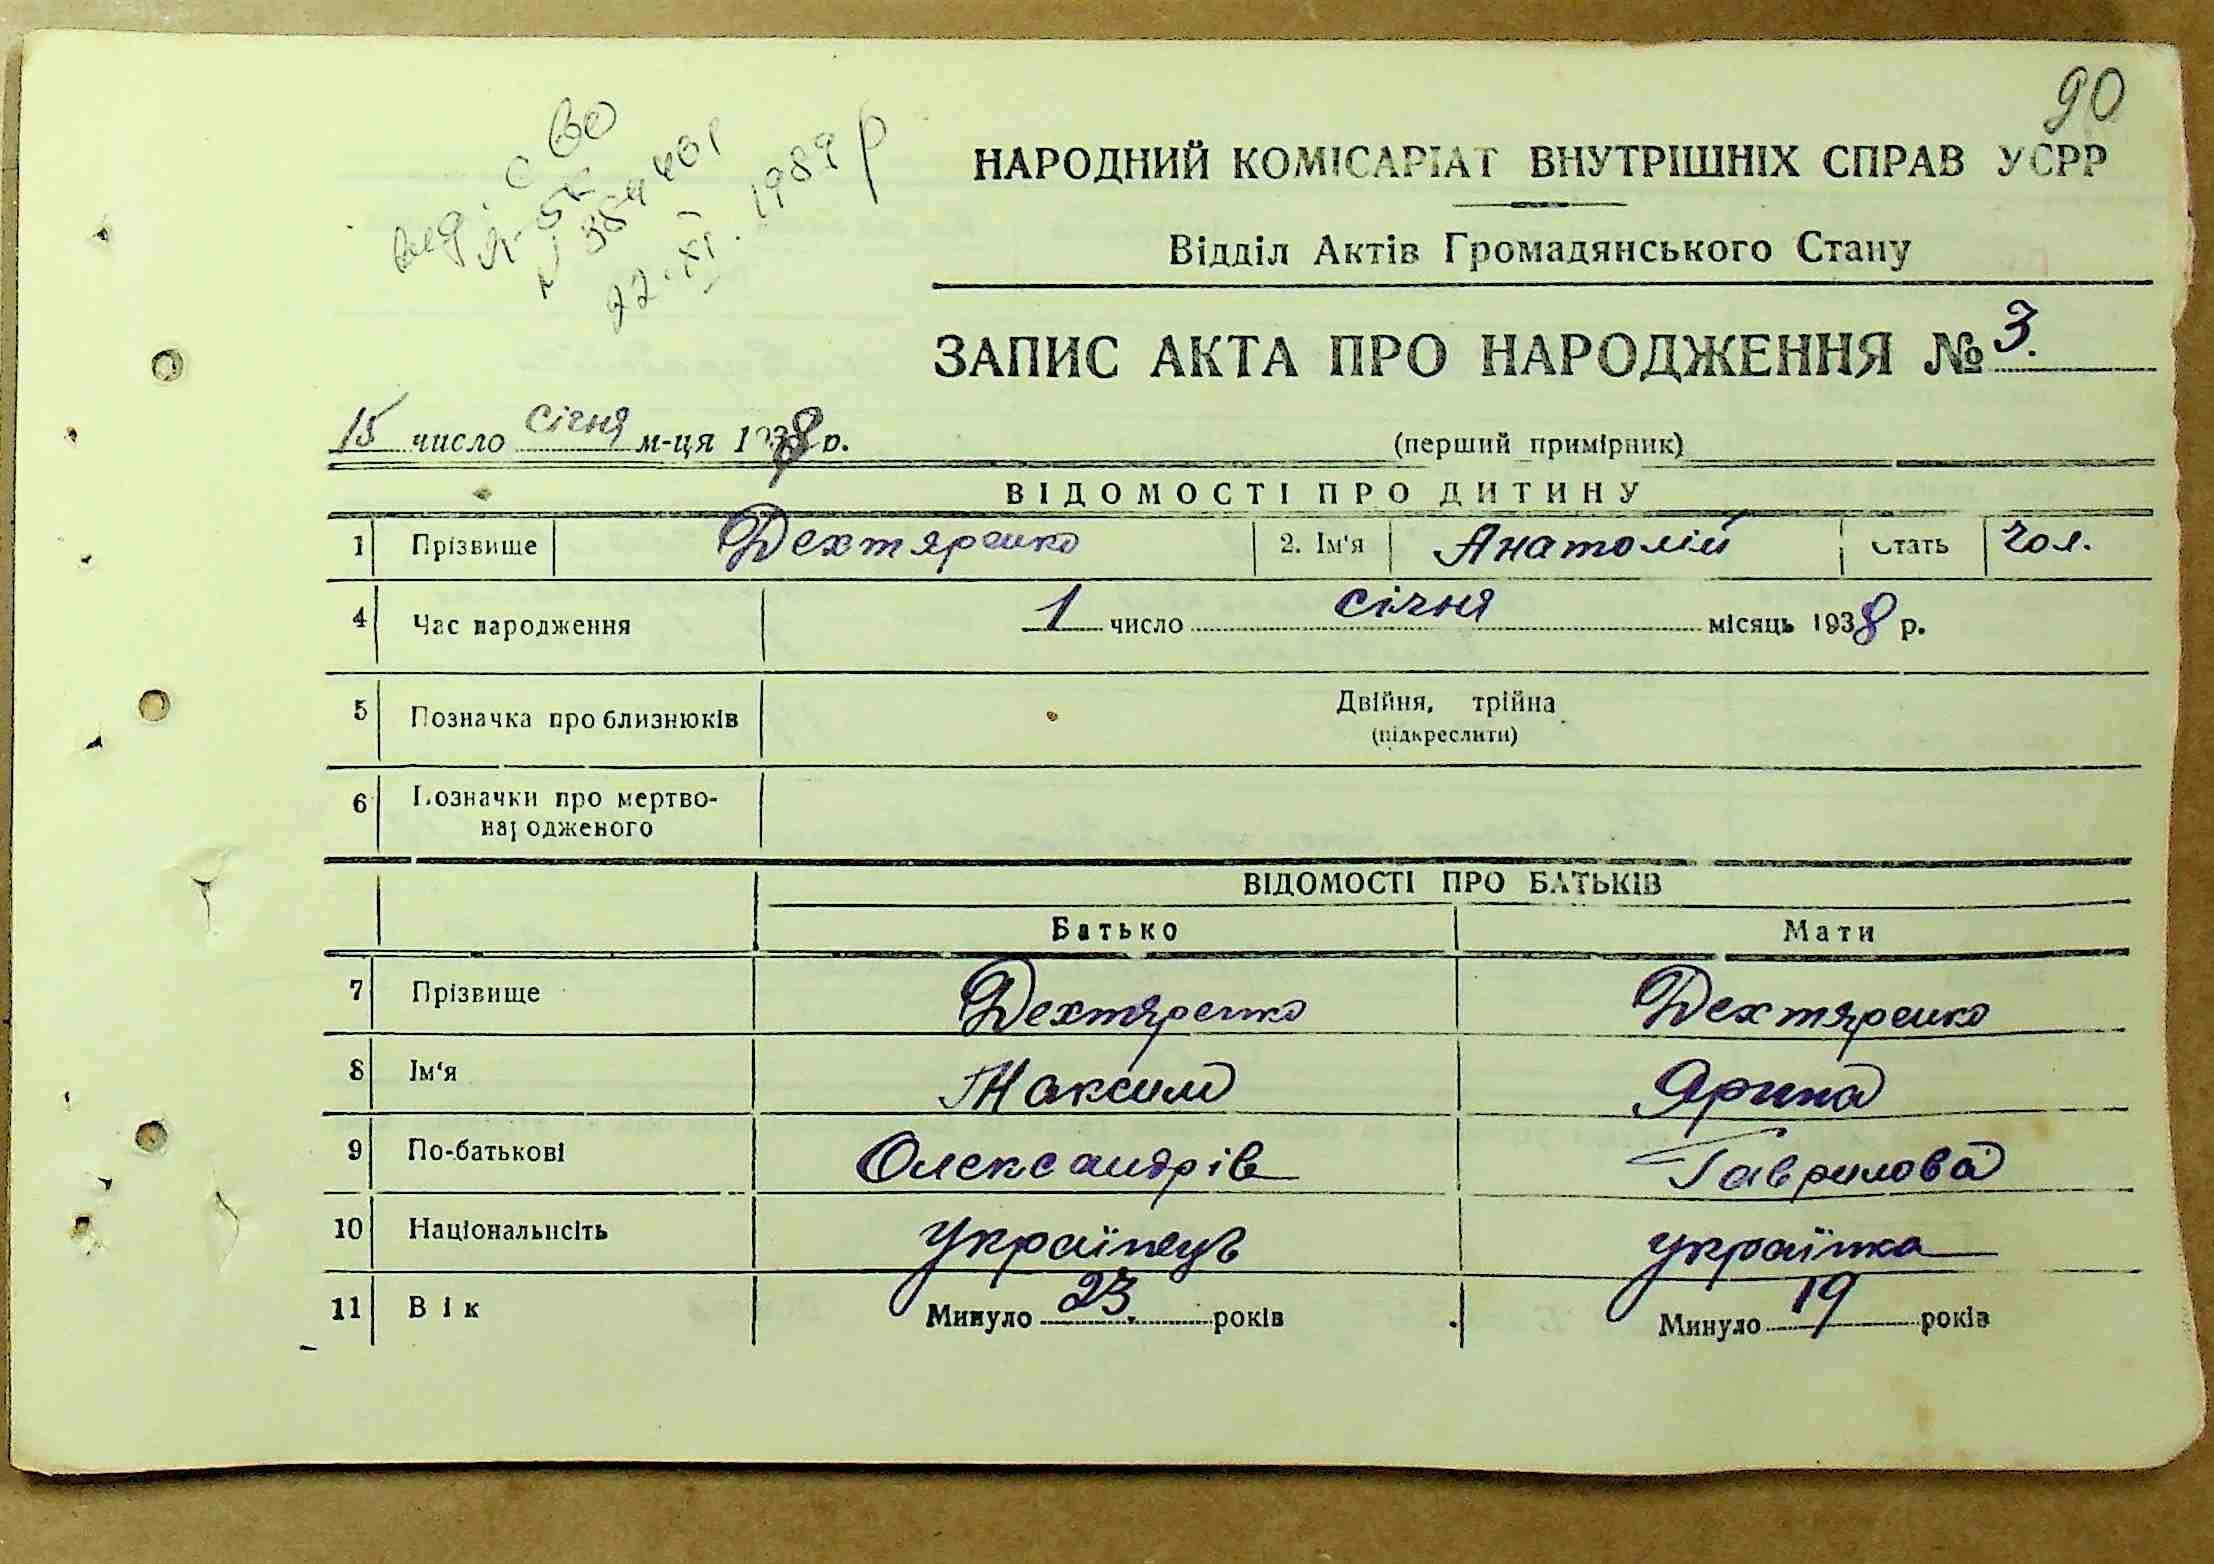 90
НАРОДНИЙ КОМІСАРІАТ ВНУТРІШНІХ СПРАВ УСРР
Відділ Актів Громадянського Стану
22.XI.1989 р
ЗАПИС АКТА ПРО НАРОДЖЕННЯ № 3.
15 число січня м-ця 1938 р.
(перший примірник)
ВІДОМОСТІ ПРО ДИТИНУ
1 Прізвище Дехтяренко 2. Ім'я Анатолій Стать чол.
4 Час народження 1 число січня місяць 1938 р.
5 Позначка про близнюків Двійня, трійна
(підкреслити)
6 Позначки про мертво-
народженого
ВІДОМОСТІ ПРО БАТЬКІВ
Батько Мати
7 Прізвище Дехтяренко Дехтяренко
8 Ім'я Максим Ярина
9 По-батькові Олександрів Гаврилова
10 Національнсіть українець українка
11 Вік Минуло 23 років Минуло 19 років